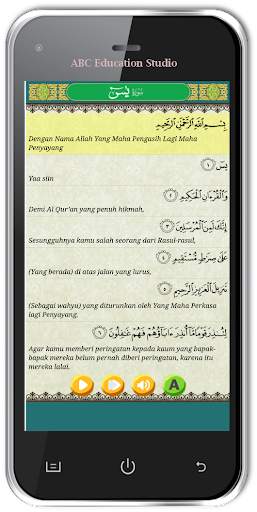 ABC Education Studio
سورة يس
بِسْمِ اللَّهِ الرَّحْمَٰنِ الرَّحِيمِ
Dengan Nama Allah Yang Maha Pengasih Lagi Maha
Penyayang
يس ١
Yaa siin
وَالْقُرْآنِ الْحَكِيمِ ٢
Demi Al Qur'an yang penuh hikmah,
إِنَّكَ لَمِنَ الْمُرْسَلِينَ ٣
Sesungguhnya kamu salah seorang dari Rasul-rasul,
عَلَىٰ صِرَاطٍ مُسْتَقِيمٍ ٤
(Yang berada) di atas jalan yang lurus,
تَنْزِيلَ الْعَزِيزِ الرَّحِيمِ ٥
(Sebagai wahyu) yang diturunkan oleh Yang Maha Perkasa
lagi Penyayang.
لِتُنْذِرَ قَوْمًا مَا أُنْذِرَ آبَاؤُهُمْ فَهُمْ غَافِلُونَ ٦
Agar kamu memberi peringatan kepada kaum yang bapak-
bapak mereka belum pernah diberi peringatan, karena itu
mereka lalai.
A